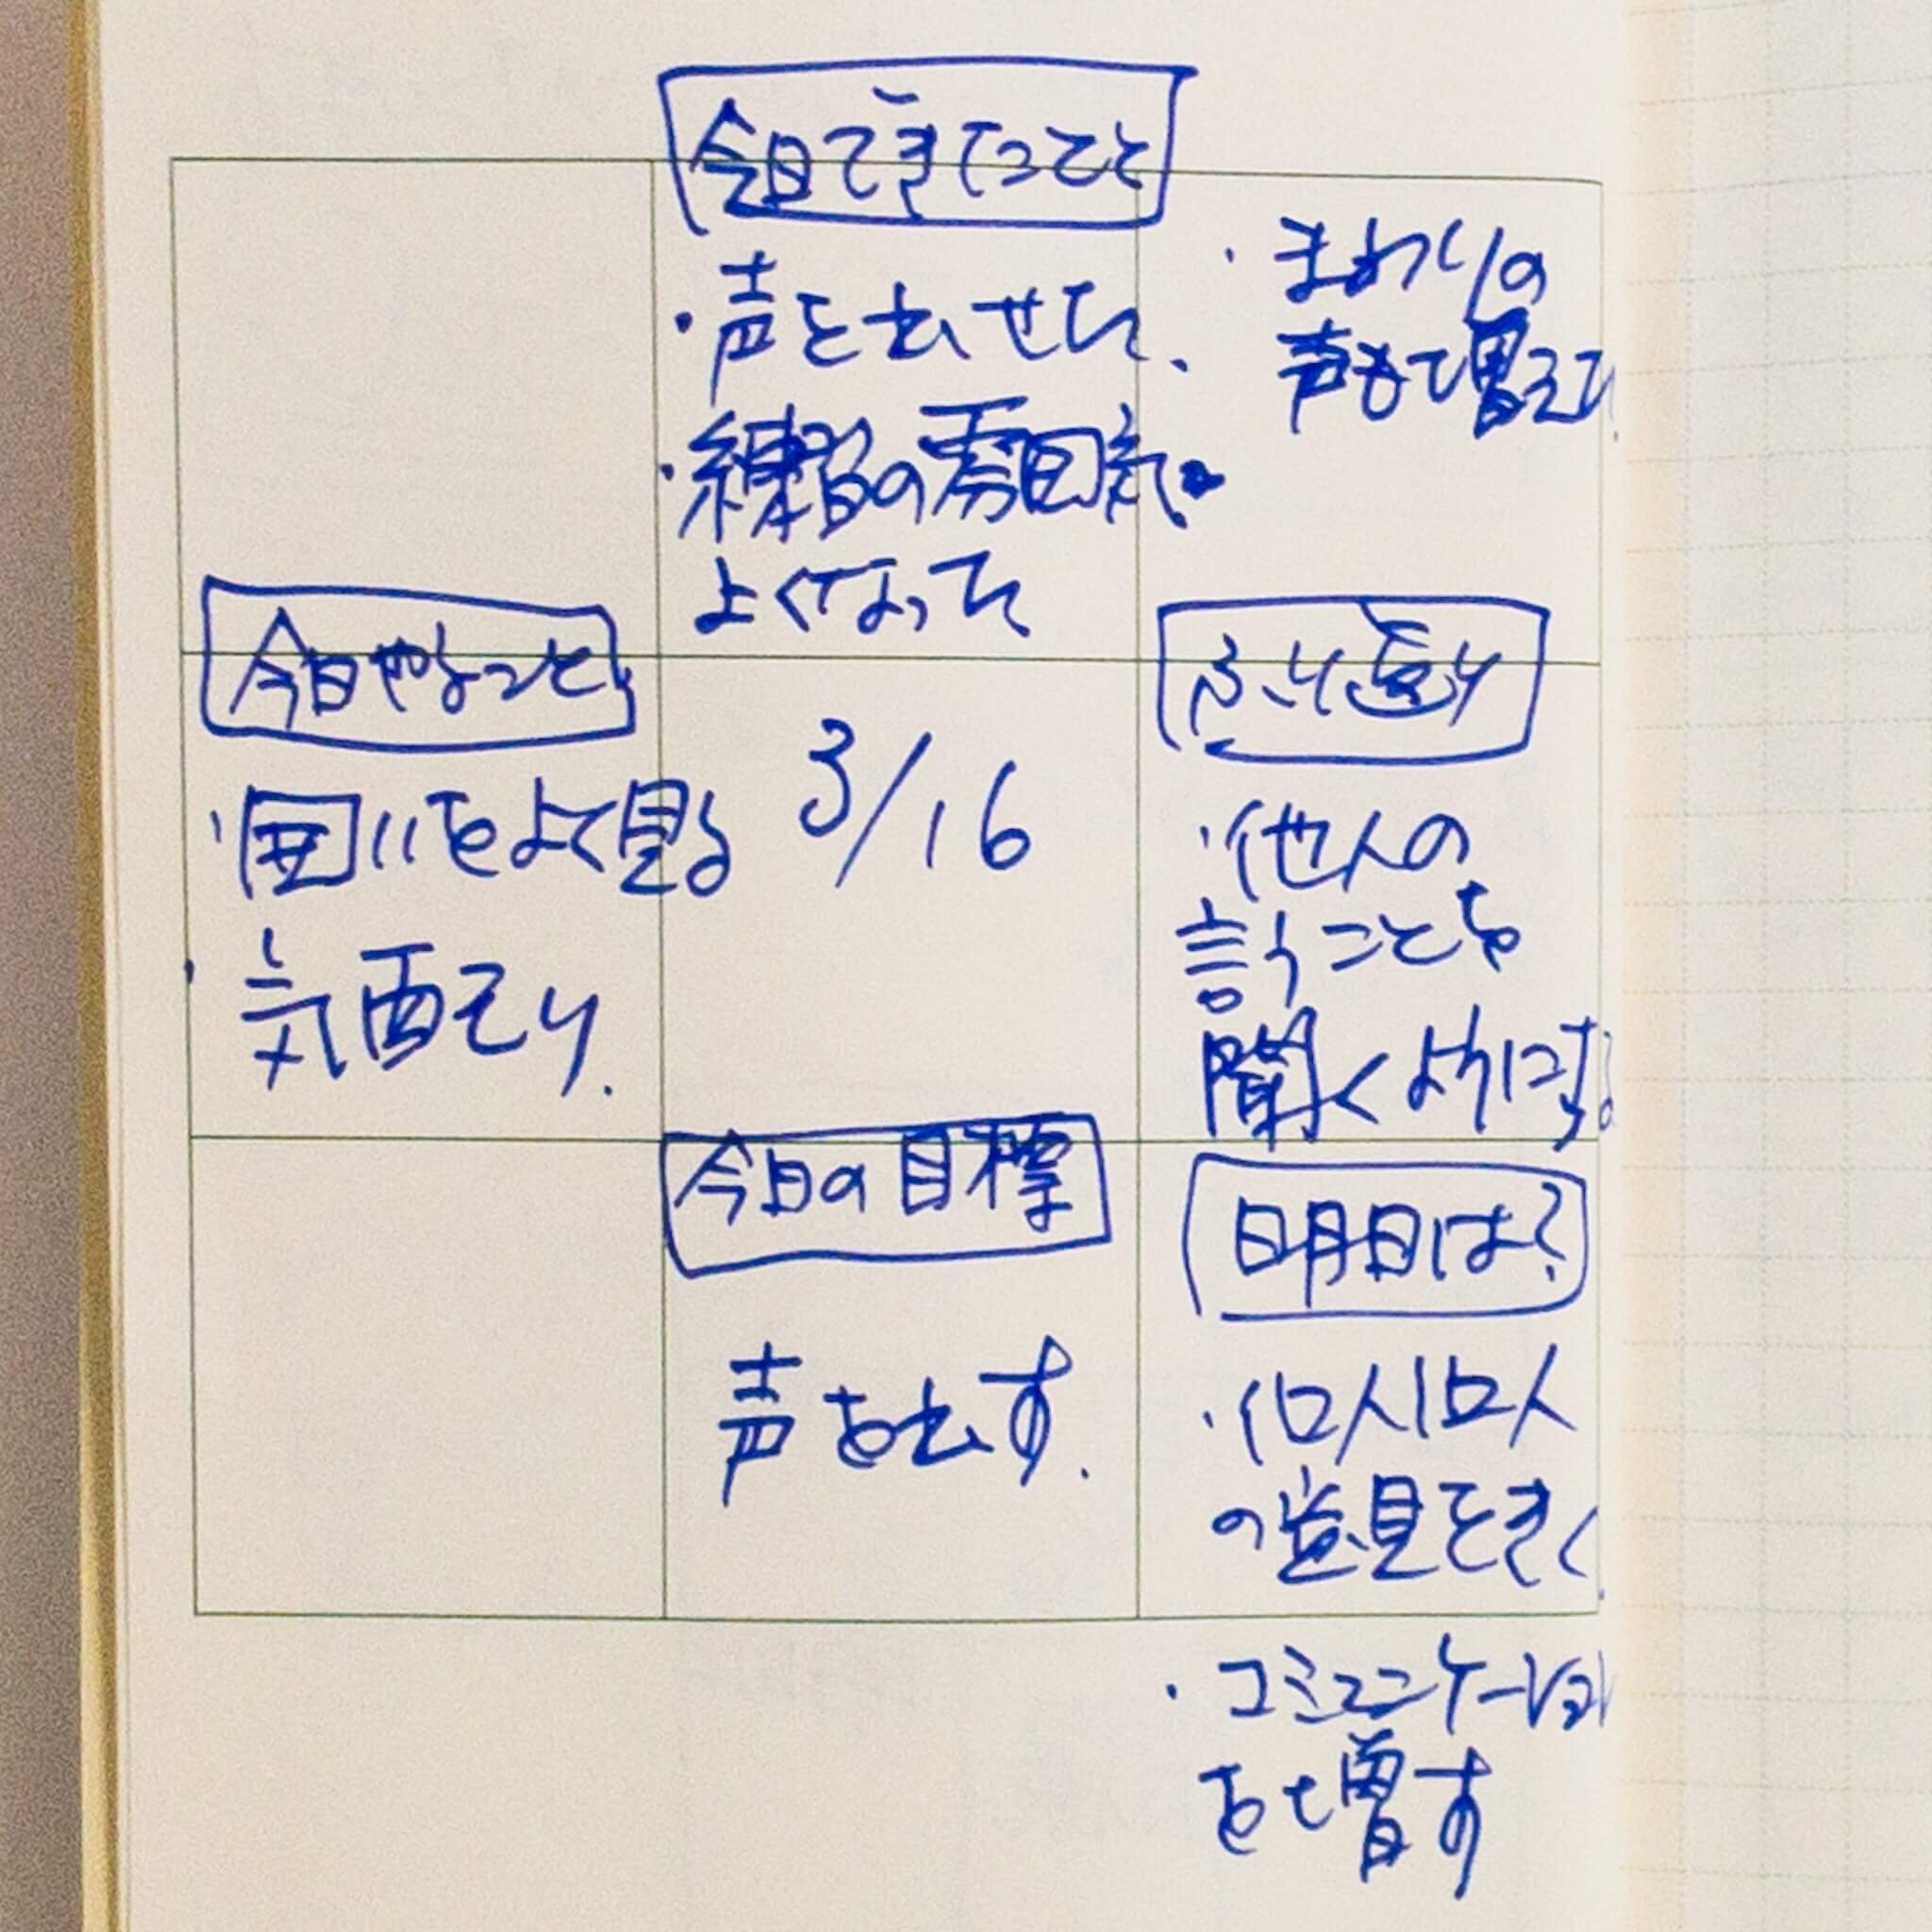 今日できたこと
・声を出せた、
・練習の雰囲気
よくなった
・まわりの
声も増えた
今日やること
・囲いをよく見る
・気配り.
3/16
ふり返り
・他人の
言うことを
聞くようにする
今日の目標
声を出す.
明日は?
の意見をきく
・コミュニケーション
を増す